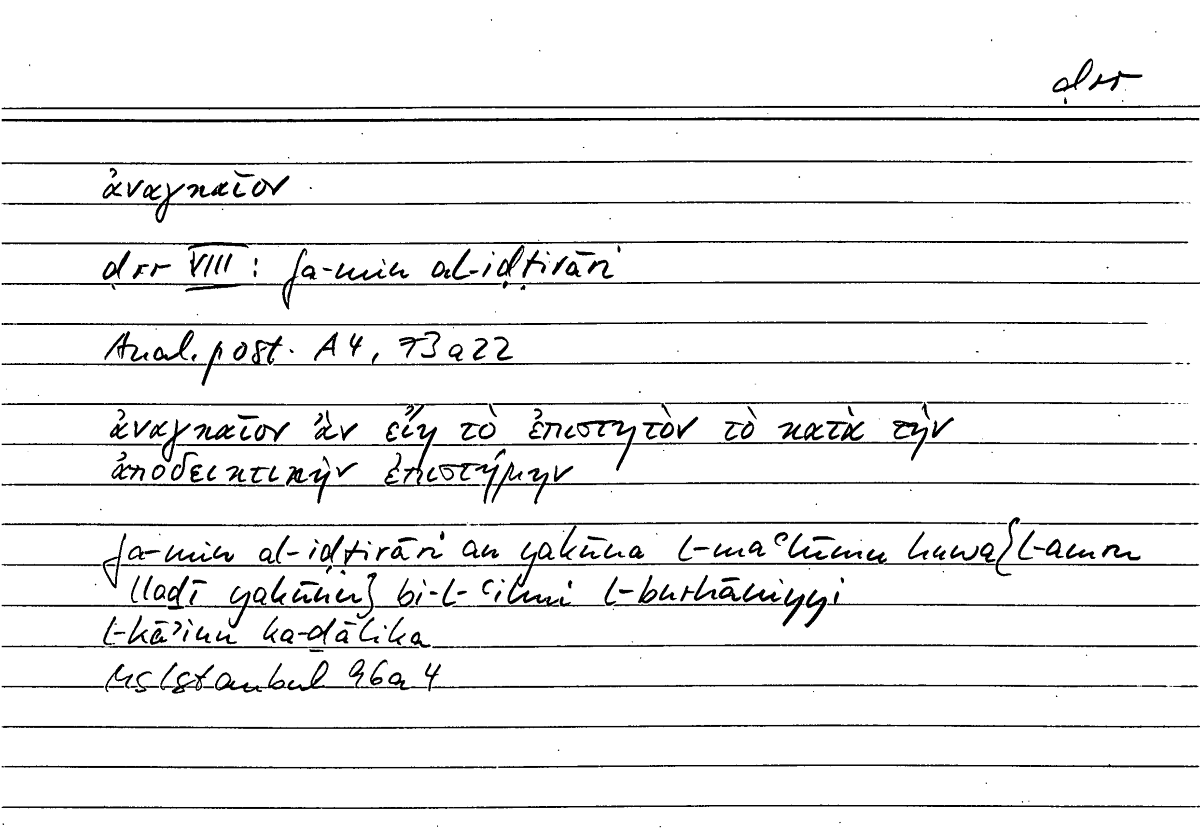 ḍrr
ἀναγκαῖον
ḍrr VIII : fa-min al-iḍṭirāri
Anal. post. A4, 73a22
ἀναγκαῖον ἂν εἴη τὸ ἐπιστητὸν τὸ κατὰ τὴν
ἀποδεικτικὴν ἐπιστήμην
fa-min al-iḍṭirāri an yakūna l-maʿlūmu huwa {l-amru
lladī yakūnu} bi-l-ʿilmi l-burhāniyyi
l-kāʾinu ka-ḏālika
Ms Istanbul 96a 4